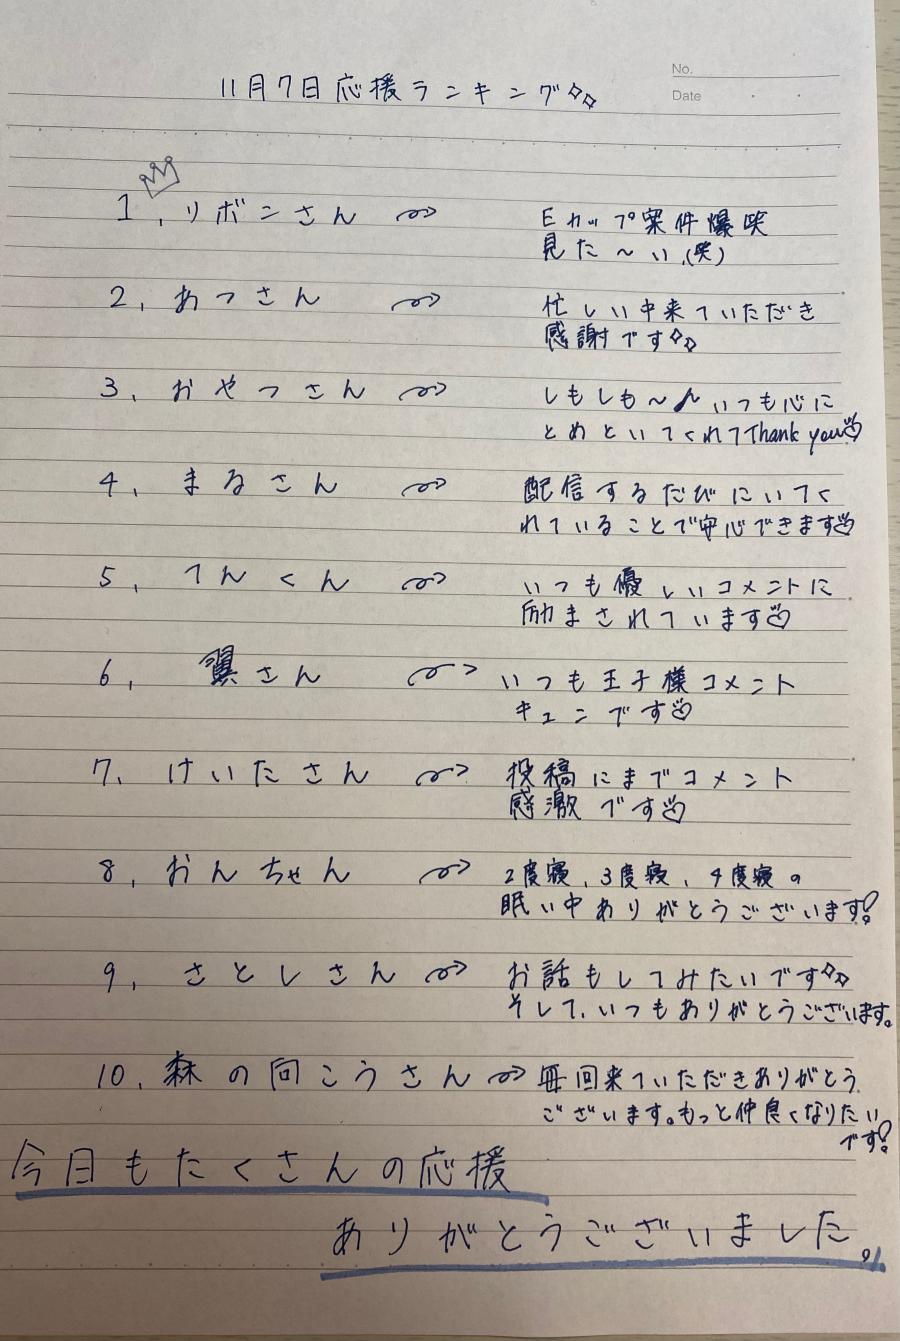 No.
Date
11月7日応援ランキング
1, リボンさん
Eカップ案件爆笑
見た〜い.(笑)
2, あつさん
忙しい中来ていただき
感謝です
3, おやつさん
しもしも〜 いつも心に
とめといてくれてThank you♡
4, まるさん
配信するたびにいてく
れていることで安心できます♡
5, てんくん
いつも優しいコメントに
励まされています♡
6, 翼さん
いつも王子様コメント
キュンです♡
7, けいたさん
投稿にまでコメント
感激です♡
8, おんちゃん
2度寝、3度寝、4度寝の
眠い中ありがとうございます!
9, さとしさん
お話もしてみたいです
そして、いつもありがとうございます。
10, 森の向こうさん
毎回来ていただきありがとう
ございます。もっと仲良くなりたい
です!
今日もたくさんの応援
ありがとうございました。